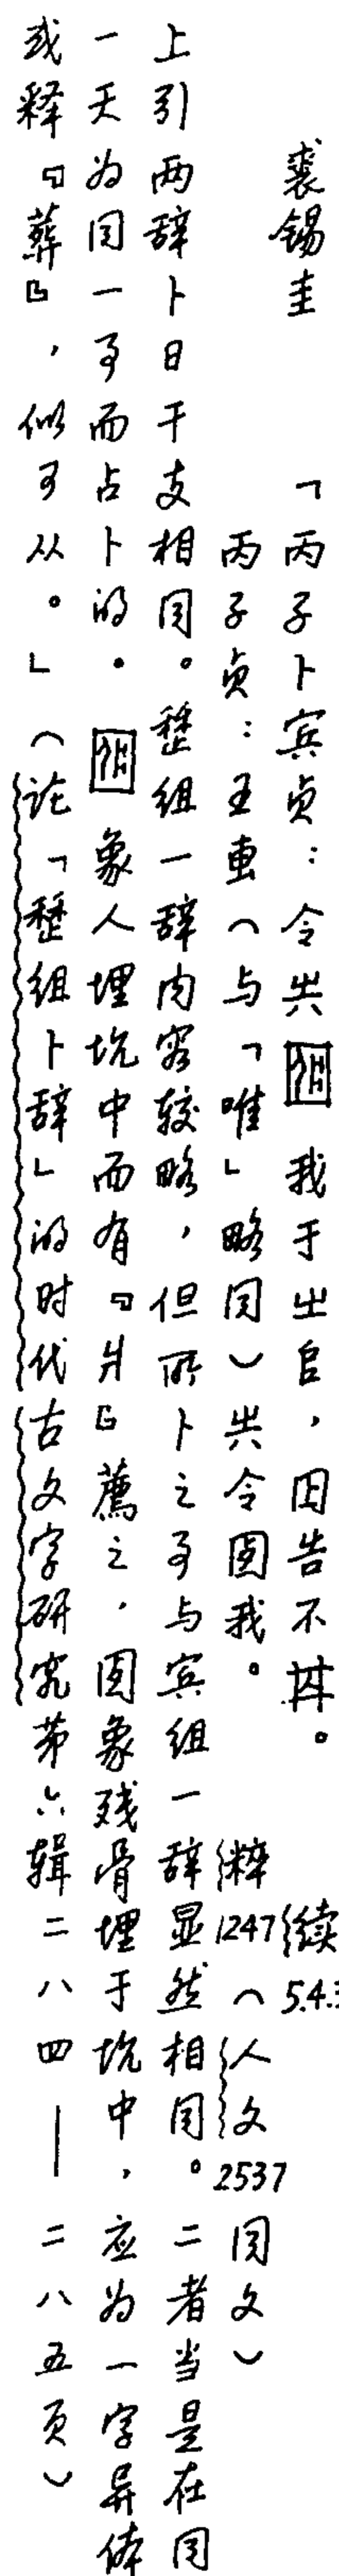 裘锡圭 「丙子卜宾贞：令㞢我于㞢𠂤，囚告不。 续5.4.3
丙子贞：王叀（与「唯」略同）㞢令囚我。 粹1247（人文2537同文）
上引两辞卜日干支相同。𠂤组一辞内容较略，但所卜之事与宾组一辞显然相同。二者当是在同
一天为同一事而占卜的。象人埋坑中而有『爿』荐之，囚象残骨埋于坑中，应为一字异体
或释『葬』，似可从。」（论「𠂤组卜辞」的时代古文字研究第六辑二八四——二八五页）